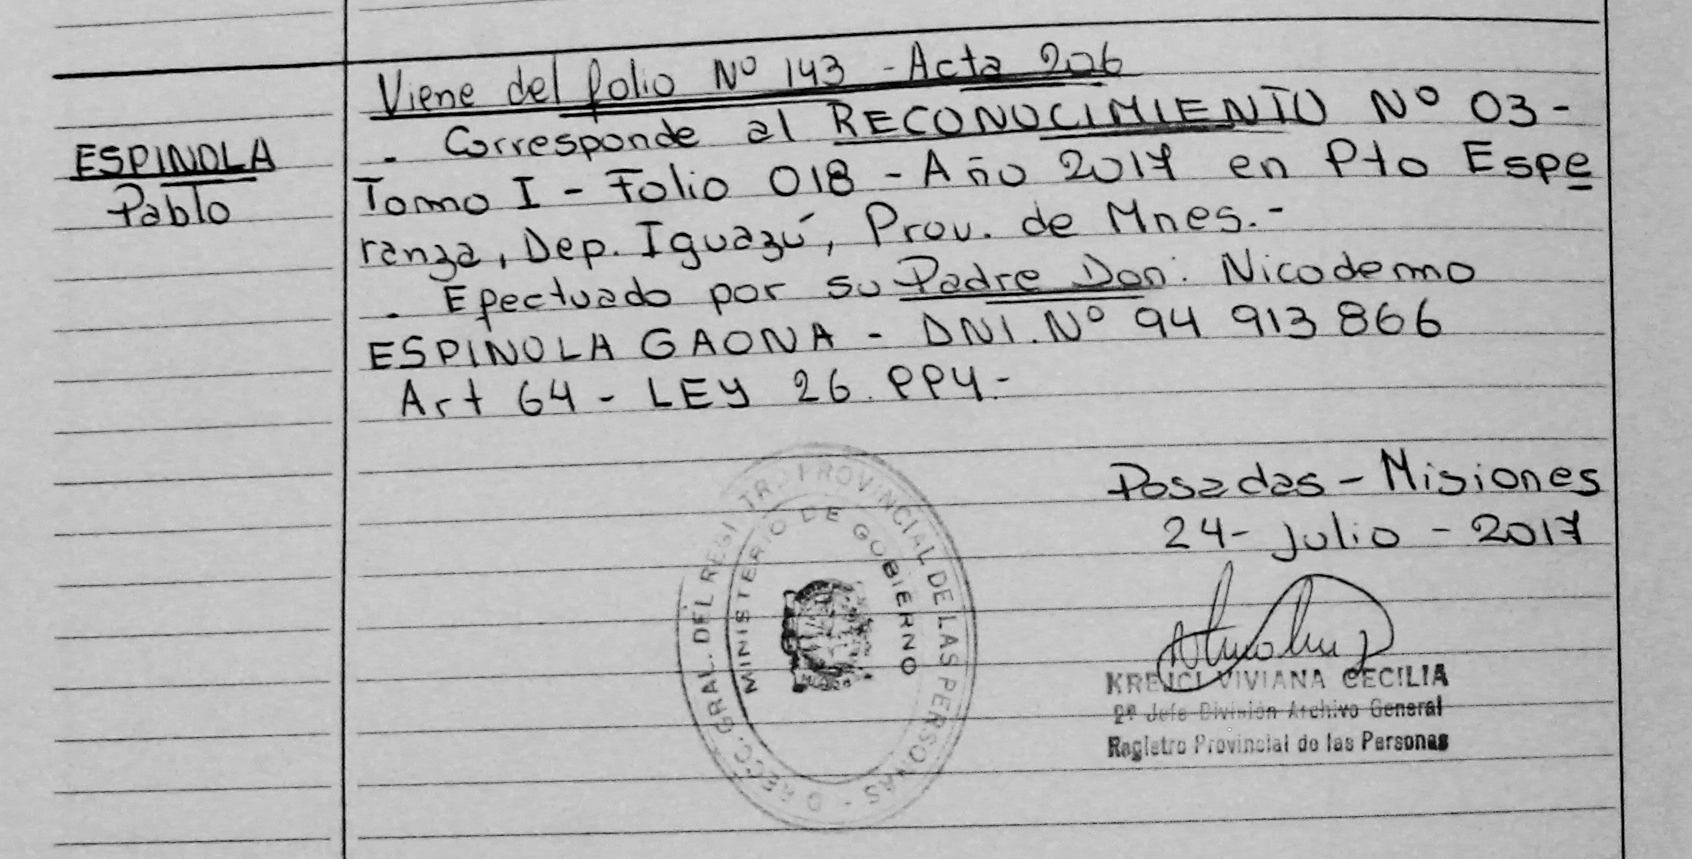 Viene del folio Nº 143 - Acta 206
ESPINOLA
Pablo
. Corresponde al RECONOCIMIENTO Nº 03 -
Tomo I - Folio 018 - Año 2017 en Pto Espe
ranza, Dep. Iguazú, Prov. de Mnes.-
. Efectuado por su Padre Don: Nicodemo
ESPINOLA GAONA - DNI. Nº 94 913 866
Art 64 - LEY 26.994.-
Posadas - Misiones
24 - Julio - 2017
DIRECC. GRAL. DEL REGISTRO PROVINCIAL DE LAS PERSONAS -
MINISTERIO DE GOBIERNO
KREJCI VIVIANA CECILIA
2º Jefe División Archivo General
Registro Provincial de las Personas